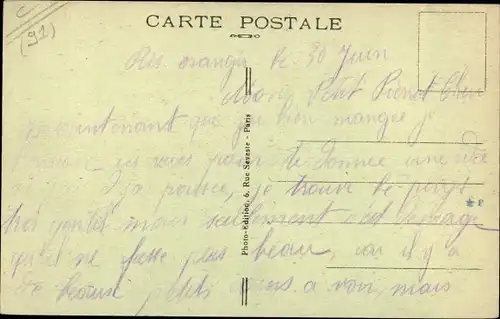 (91)
CARTE POSTALE
Ris orangis le 30 Juin
Mon Petit Pierrot Cher
Maintenant que j'ai bien mangée je
vues pour te donner une idée
je trouve le pays
très gentil mais seulement c'est
qu'il ne fasse pas beau, car il y a
de beaux petits coins a voir, mais
Photo-Edition, 6, Rue Seveste - Paris